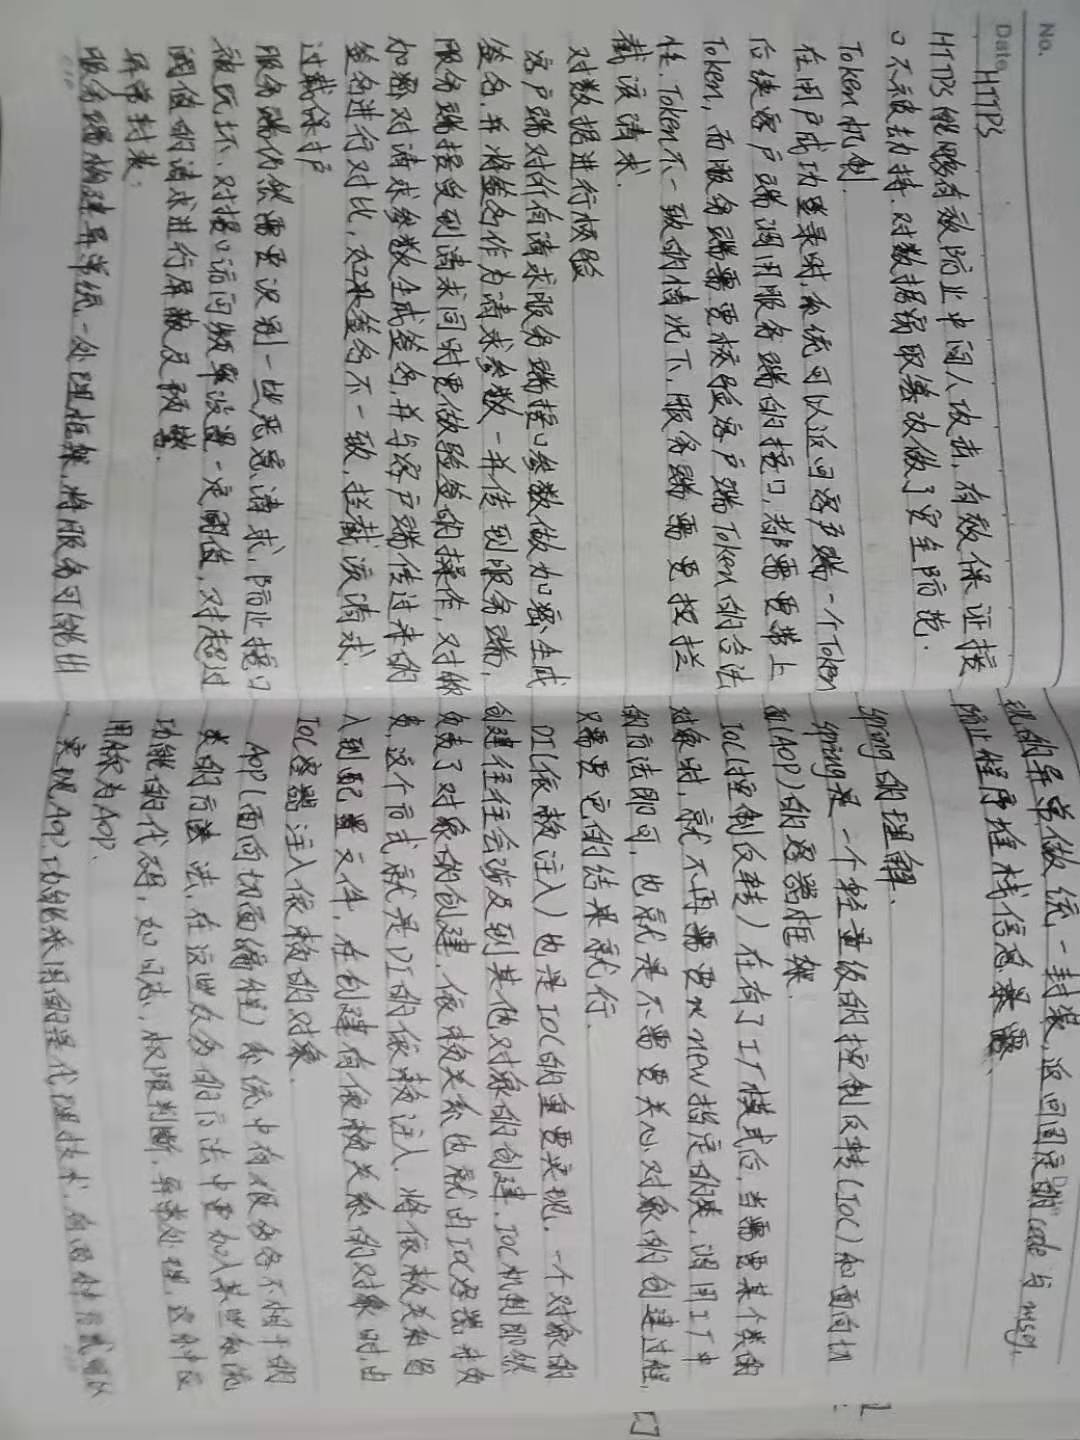 No.
Date
HTTPS
HTTPS能够有效防止中间人攻击,有效保证接
口不被劫持,对数据窃取篡改做了安全防范.
Token机制.
在用户成功登录时,系统可以返回客户端一个Token
后续客户端调用服务端的接口,都需要带上
Token,而服务端需要校验客户端Token的合法
性.Token不一致的情况下,服务端需要拦
截该请求.
对数据进行校验
客户端对价有请求服务端接口参数做加密生成
签名,并将签名作为请求参数一并传到服务端,
服务端接受到请求同时要做验签的操作,对称
加密对请求参数生成签名,并与客户端传过来的
签名进行对比,签名不一致,拦截该请求.
过载保护
服务端仍然需要识别一些恶意请求,防止接口
被玩坏.对接口访问频率设置一定阈值,对超过
阀值的请求进行屏蔽及预警.
异常封装:
服务端构建异常统一处理框架,将服务可能出
现的异常做统一封装,返回固定的code与msg,
防止程序堆栈信息暴露.
Spring的理解.
Spring是一个轻量级的控制反转(IoC)和面向切
面(AOP)的容器框架.
IoC(控制反转)在有了工厂模式后,当需要某个类的
对象时,就不再需要new指定的类,调用工厂中
的方法即可,也就是不需要关心对象的创建过程,
只需要它的结果就行.
DI(依赖注入)也是IOC的重要实现,一个对象的
创建往往会涉及到其他对象的创建,IOC机制即然
负责了对象的创建,依赖关系也就由IOC容器来负
责,这个方式就是DI的依赖注入.将依赖关系写
入到配置文件,在创建有依赖关系的对象时,由
IOC容器注入依赖的对象.
AOP(面向切面编程)系统中有很多各不相干的
类的方法,在这些众多的方法中要加入某些系统
功能的代码,如日志,权限判断,异常处理,这种应
用称为AOP.
实现AOP功能采用的是代理技术,